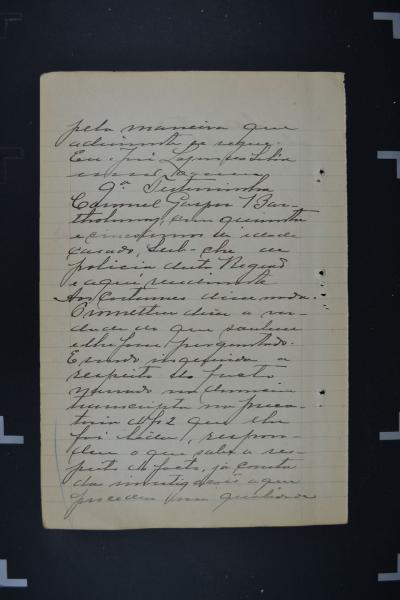 pela maneira que
adiante se segue.
Eu, José Lopes da Silva
escrivão
9ª Testemunha
Coronel Gaspar Bar-
tholomay, com quarenta
e cinco annos de idade
casado, Sub-chefe de
policia desta Região
e aqui residente
Aos costumes disse nada.
Prometteu dizer a ver-
dade do que soubesse
e lhe fosse perguntado.
E sendo inquirido a
respeito do facto
narrado na denuncia
transcripta na preca-
toria de fls 2 que lhe
foi lida, respon-
deu o que sabe a res-
peito do facto, já consta
das investigações a que
procedeu na qualidade